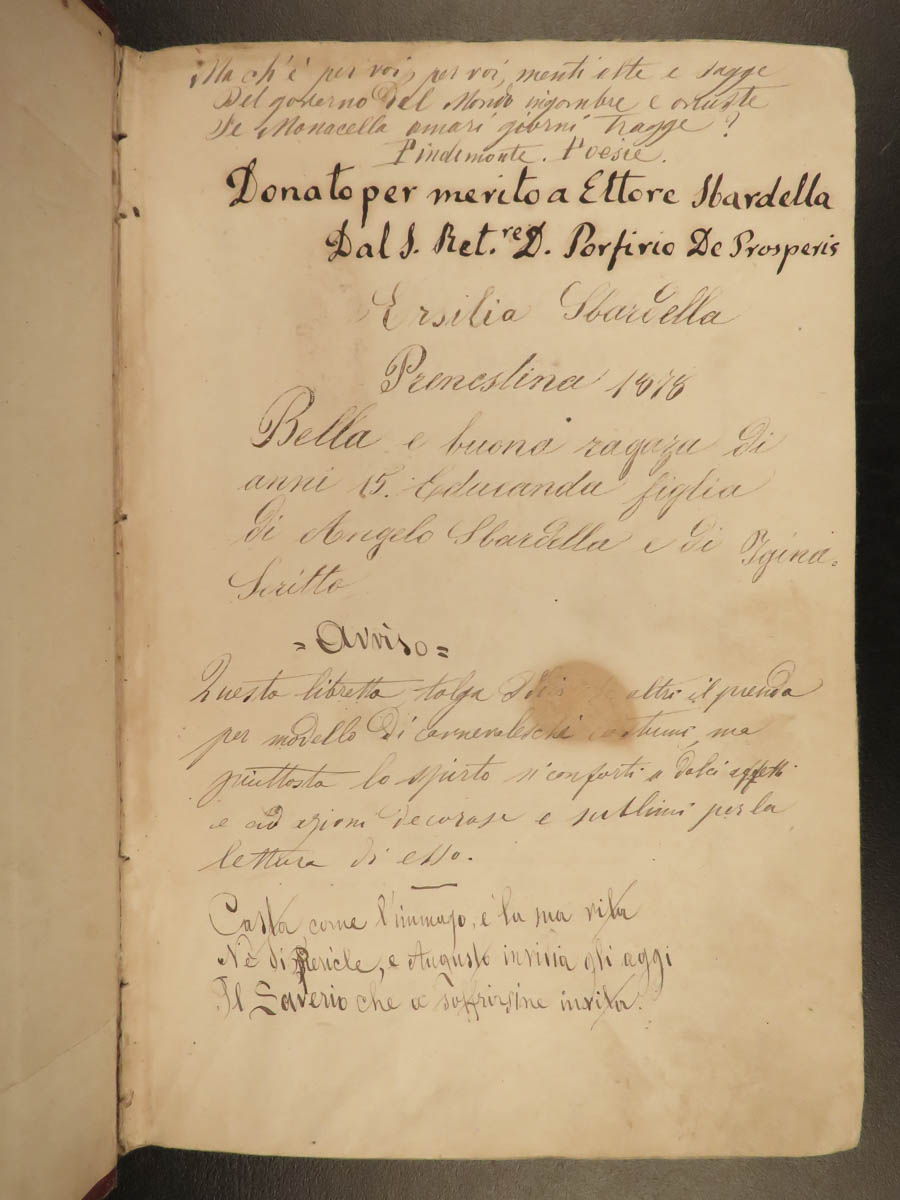 Ma ch'è per voi, per voi, menti elte e sagge
Del governo del Mondo ingombre e onuste
Se Monacella amari giorni tragge?
Pindemonte. Poesie.
Donato per merito a Ettore Sbardella
Dal S. Ret.re D. Porfirio De Prosperis
Ersilia Sbardella
Prenestina 1878
Bella e buona ragaza di
anni 15. Educanda figlia
di Angelo Sbardella e di Igina
Scritto
= Avviso =
Questo libretto tolga Iddio che altri il prenda
per modello di carnevaleschi costumi, ma
piuttosto lo spirto si conforti a dolci affetti
e ad azioni decorose e sublimi per la
lettura di esso.
Casta come l'immago, è la sua vita
Nè di Pericle, e Augusto invidia gli aggi
Il Saverio che a soffrirsine invita.